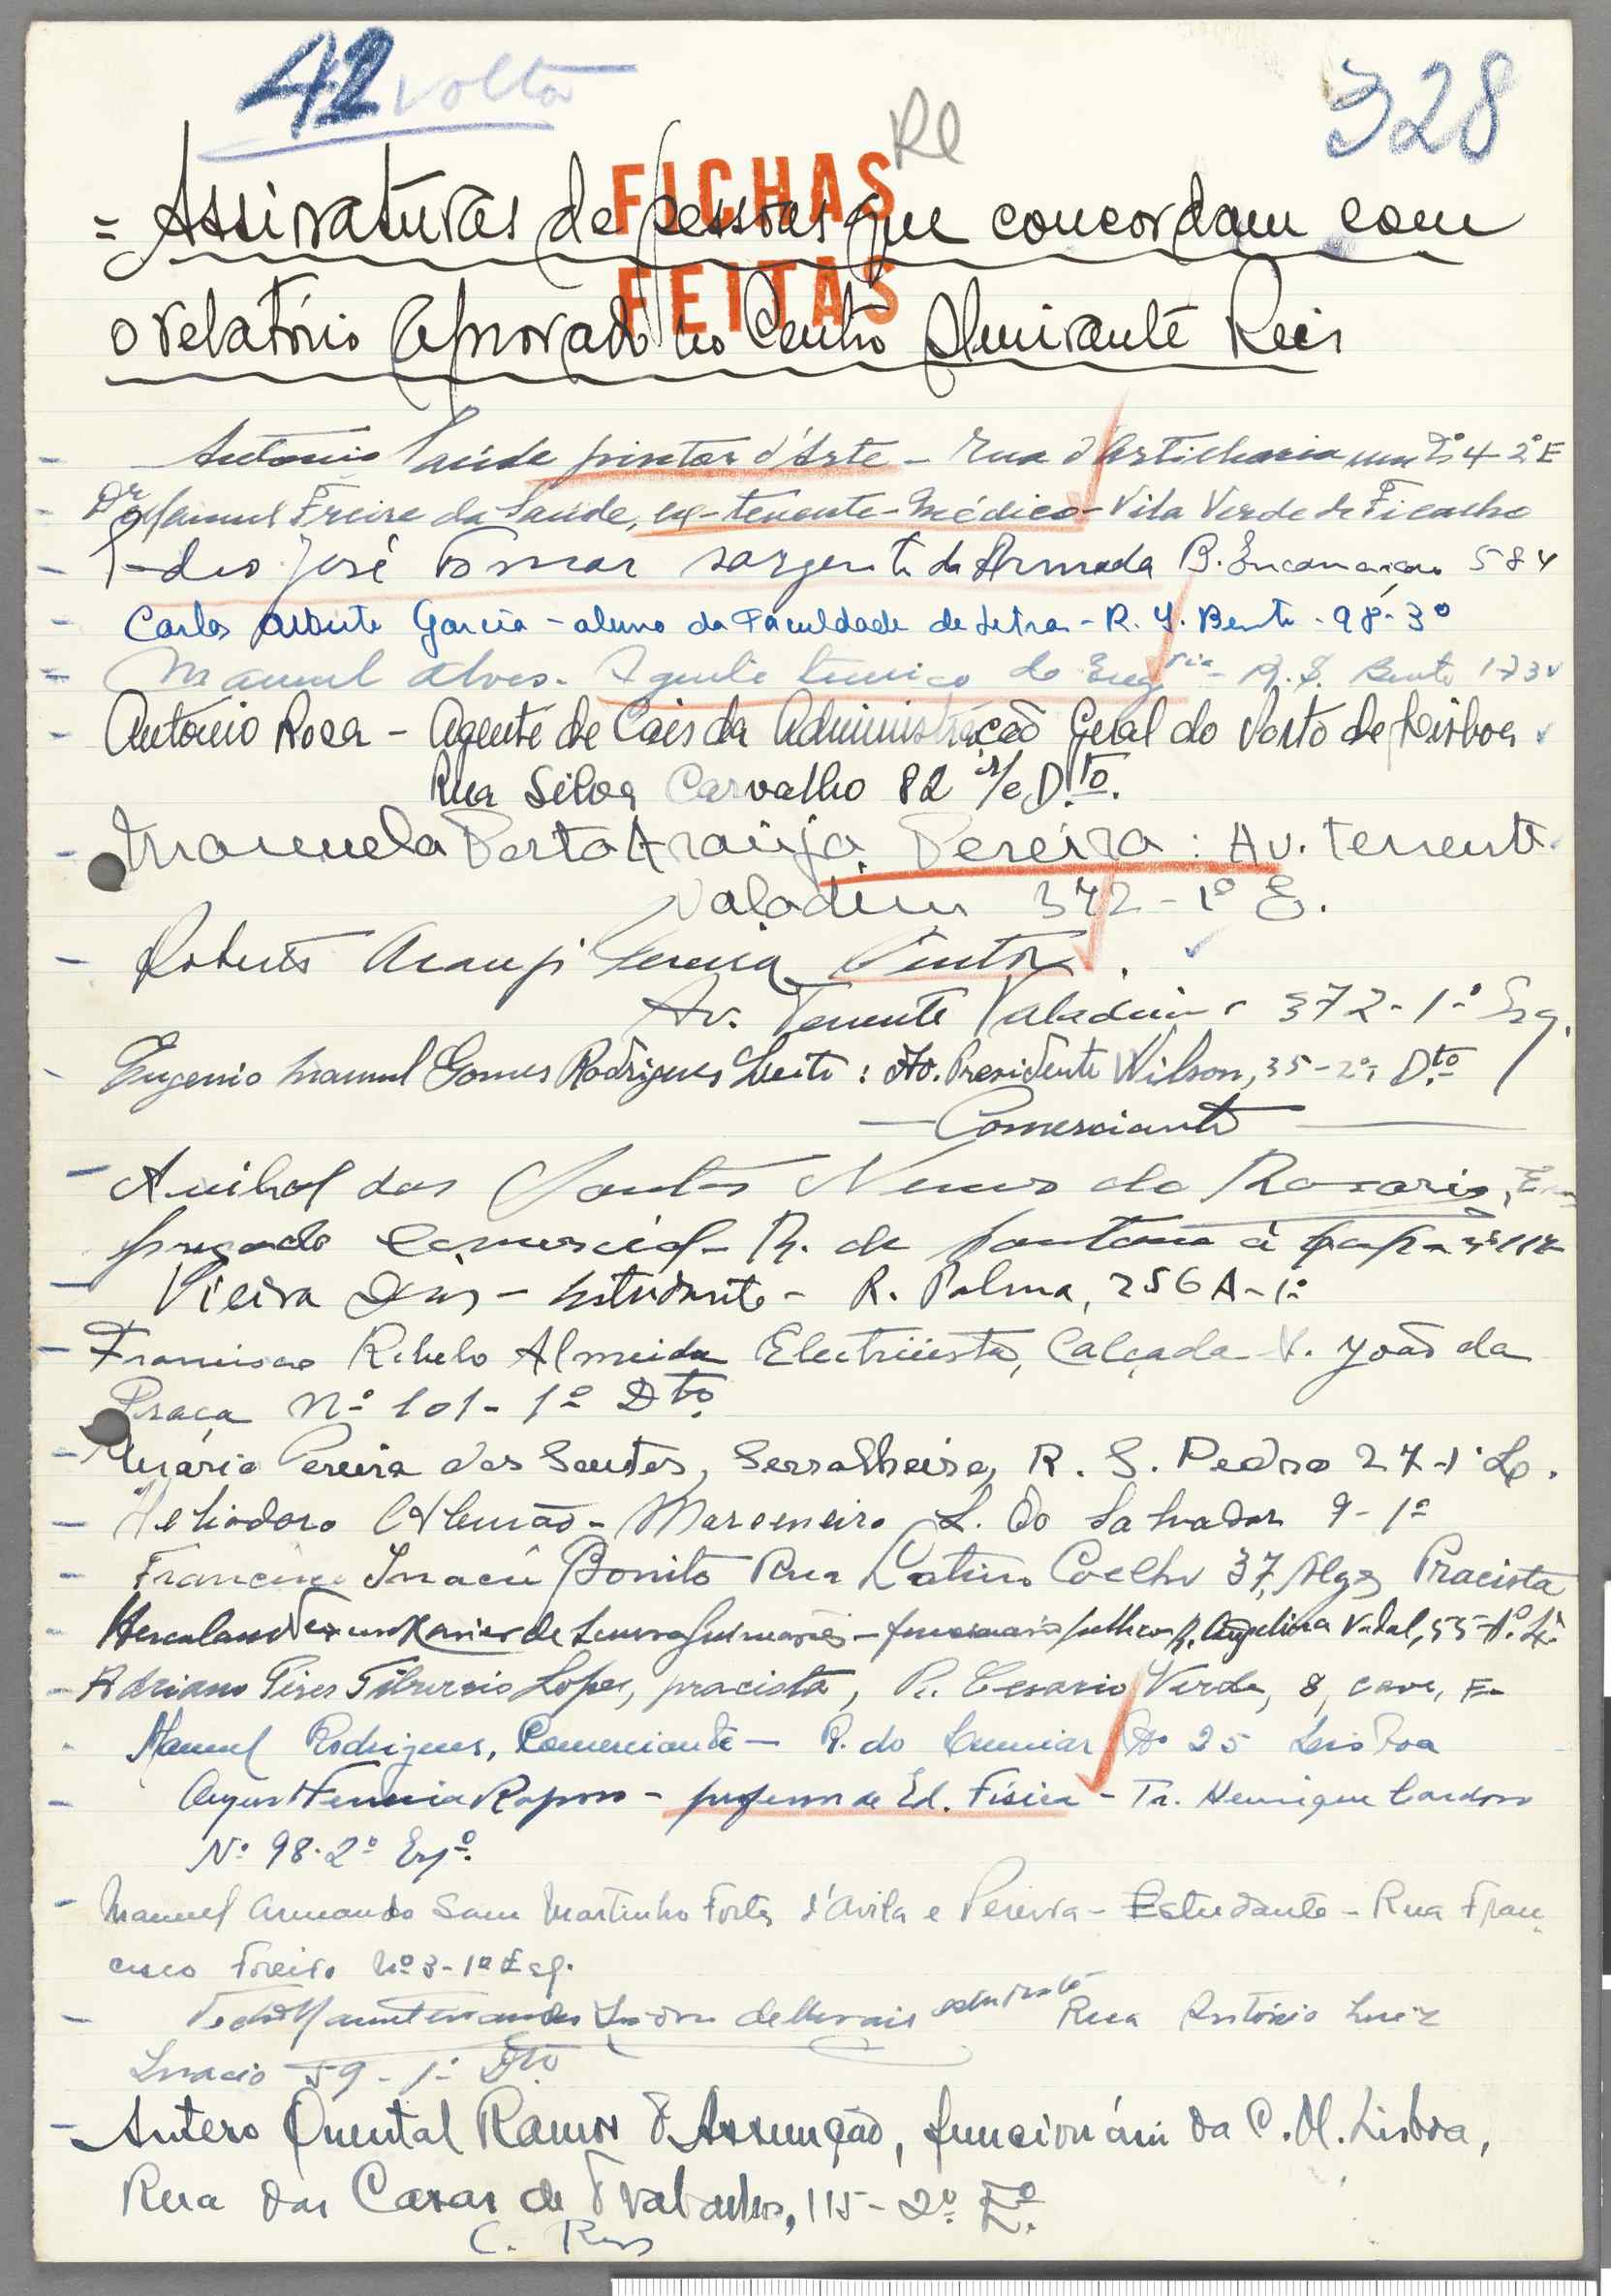 42 volta
328
Re
FICHAS
FEITAS
= Assinaturas de pessoas que concordam com
o relatório aprovado no Centro Almirante Reis
- António Saúde pintor d'Arte - Rua d'Artilharia um Nº 4-2º E
- Dr Manuel Freire da Saúde, ex-tenente-médico - Vila Verde de Ficalho
- José Tomar sargento da Armada B. Encarnação 584
- Carlos Alberto Garcia - aluno da Faculdade de Letras - R. S. Bento - 98-3º
- Manuel Alves - Agente tecnico de Engria - R. S. Bento 173
- António Rosa - Agente de Cais da Administração Geral do Porto de Lisboa
Rua Silva Carvalho 82 r/c D.to.
- Manuela Porto Araújo Pereira : Av. tenente
Valadim 372-1º E.
- Roberto Araujo Pereira Pintor.
Av. Tenente Valadim 372-1º Esq.
- Eugenio Manuel Gomes Rodrigues Leite : Av. Presidente Wilson, 35-2º, Dto
— Comerciante —
- Anibal dos Santos Nunes do Rosario, Em
pregado Comercial - R. de
- Vieira Dinis - estudante - R. Palma, 256 A-1º
- Francisco Rebelo Almeida Electricista, Calçada S. João da
Praça Nº 101-1º Dto.
- Mário Pereira dos Santos, Serralheiro, R. S. Pedro 27-1º
- Heliodoro Alemão - Marceneiro L. do Salvador 9-1º
- Francisco Inacio Bonito Rua Latino Coelho 37, Algés Pracista
- Herculano Xavier de Guimarães - funcionario publico R. Angelina Vidal, 55-
- Adriano Pires Tiburcio Lopes, pracista, R. Cesario Verde, 8, cave, E
- Manuel Rodrigues, Comerciante - R. do Lumiar Nº 25 Lisboa
- Ferreira Raposo - professor de Ed. Física - Tr. Henrique Cardoso
Nº 98-2º Esqº.
- Manuel Armando Sam Martinho Fortes d'Avila e Pereira - Estudante - Rua Fran-
cisco Foreiro Nº 3-1º Esq.
- de Morais estudante Rua António Luiz
Inacio 59-1º Dto
- Antero Quental Ramos d'Assunção, funcionário da C. M. Lisboa,
Rua das Casas de Trabalho, 115-2º E.º